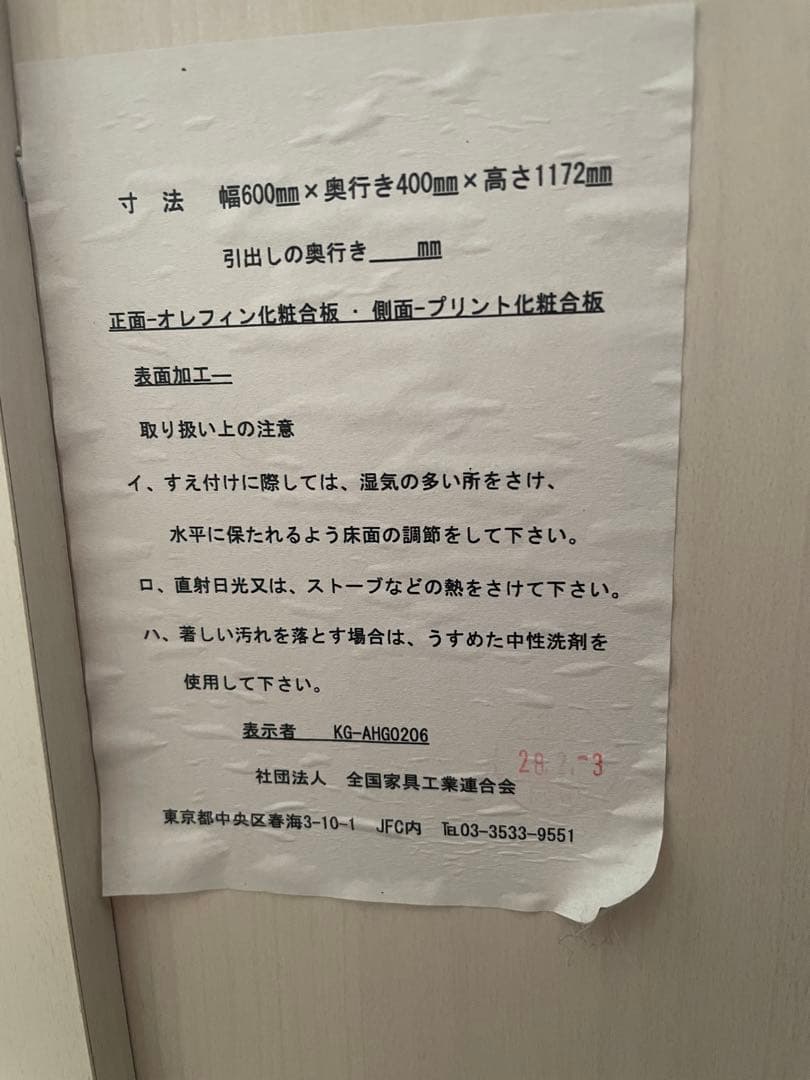 寸　法　幅600mm×奥行き400mm×高さ1172mm
引出しの奥行き＿＿mm
正面-オレフィン化粧合板・側面-プリント化粧合板
表面加工―
取り扱い上の注意
イ、すえ付けに際しては、湿気の多い所をさけ、
水平に保たれるよう床面の調節をして下さい。
ロ、直射日光又は、ストーブなどの熱をさけて下さい。
ハ、著しい汚れを落とす場合は、うすめた中性洗剤を
使用して下さい。
表示者　KG-AHG0206
28.2.-3
社団法人　全国家具工業連合会
東京都中央区春海3-10-1　JFC内　℡03-3533-9551